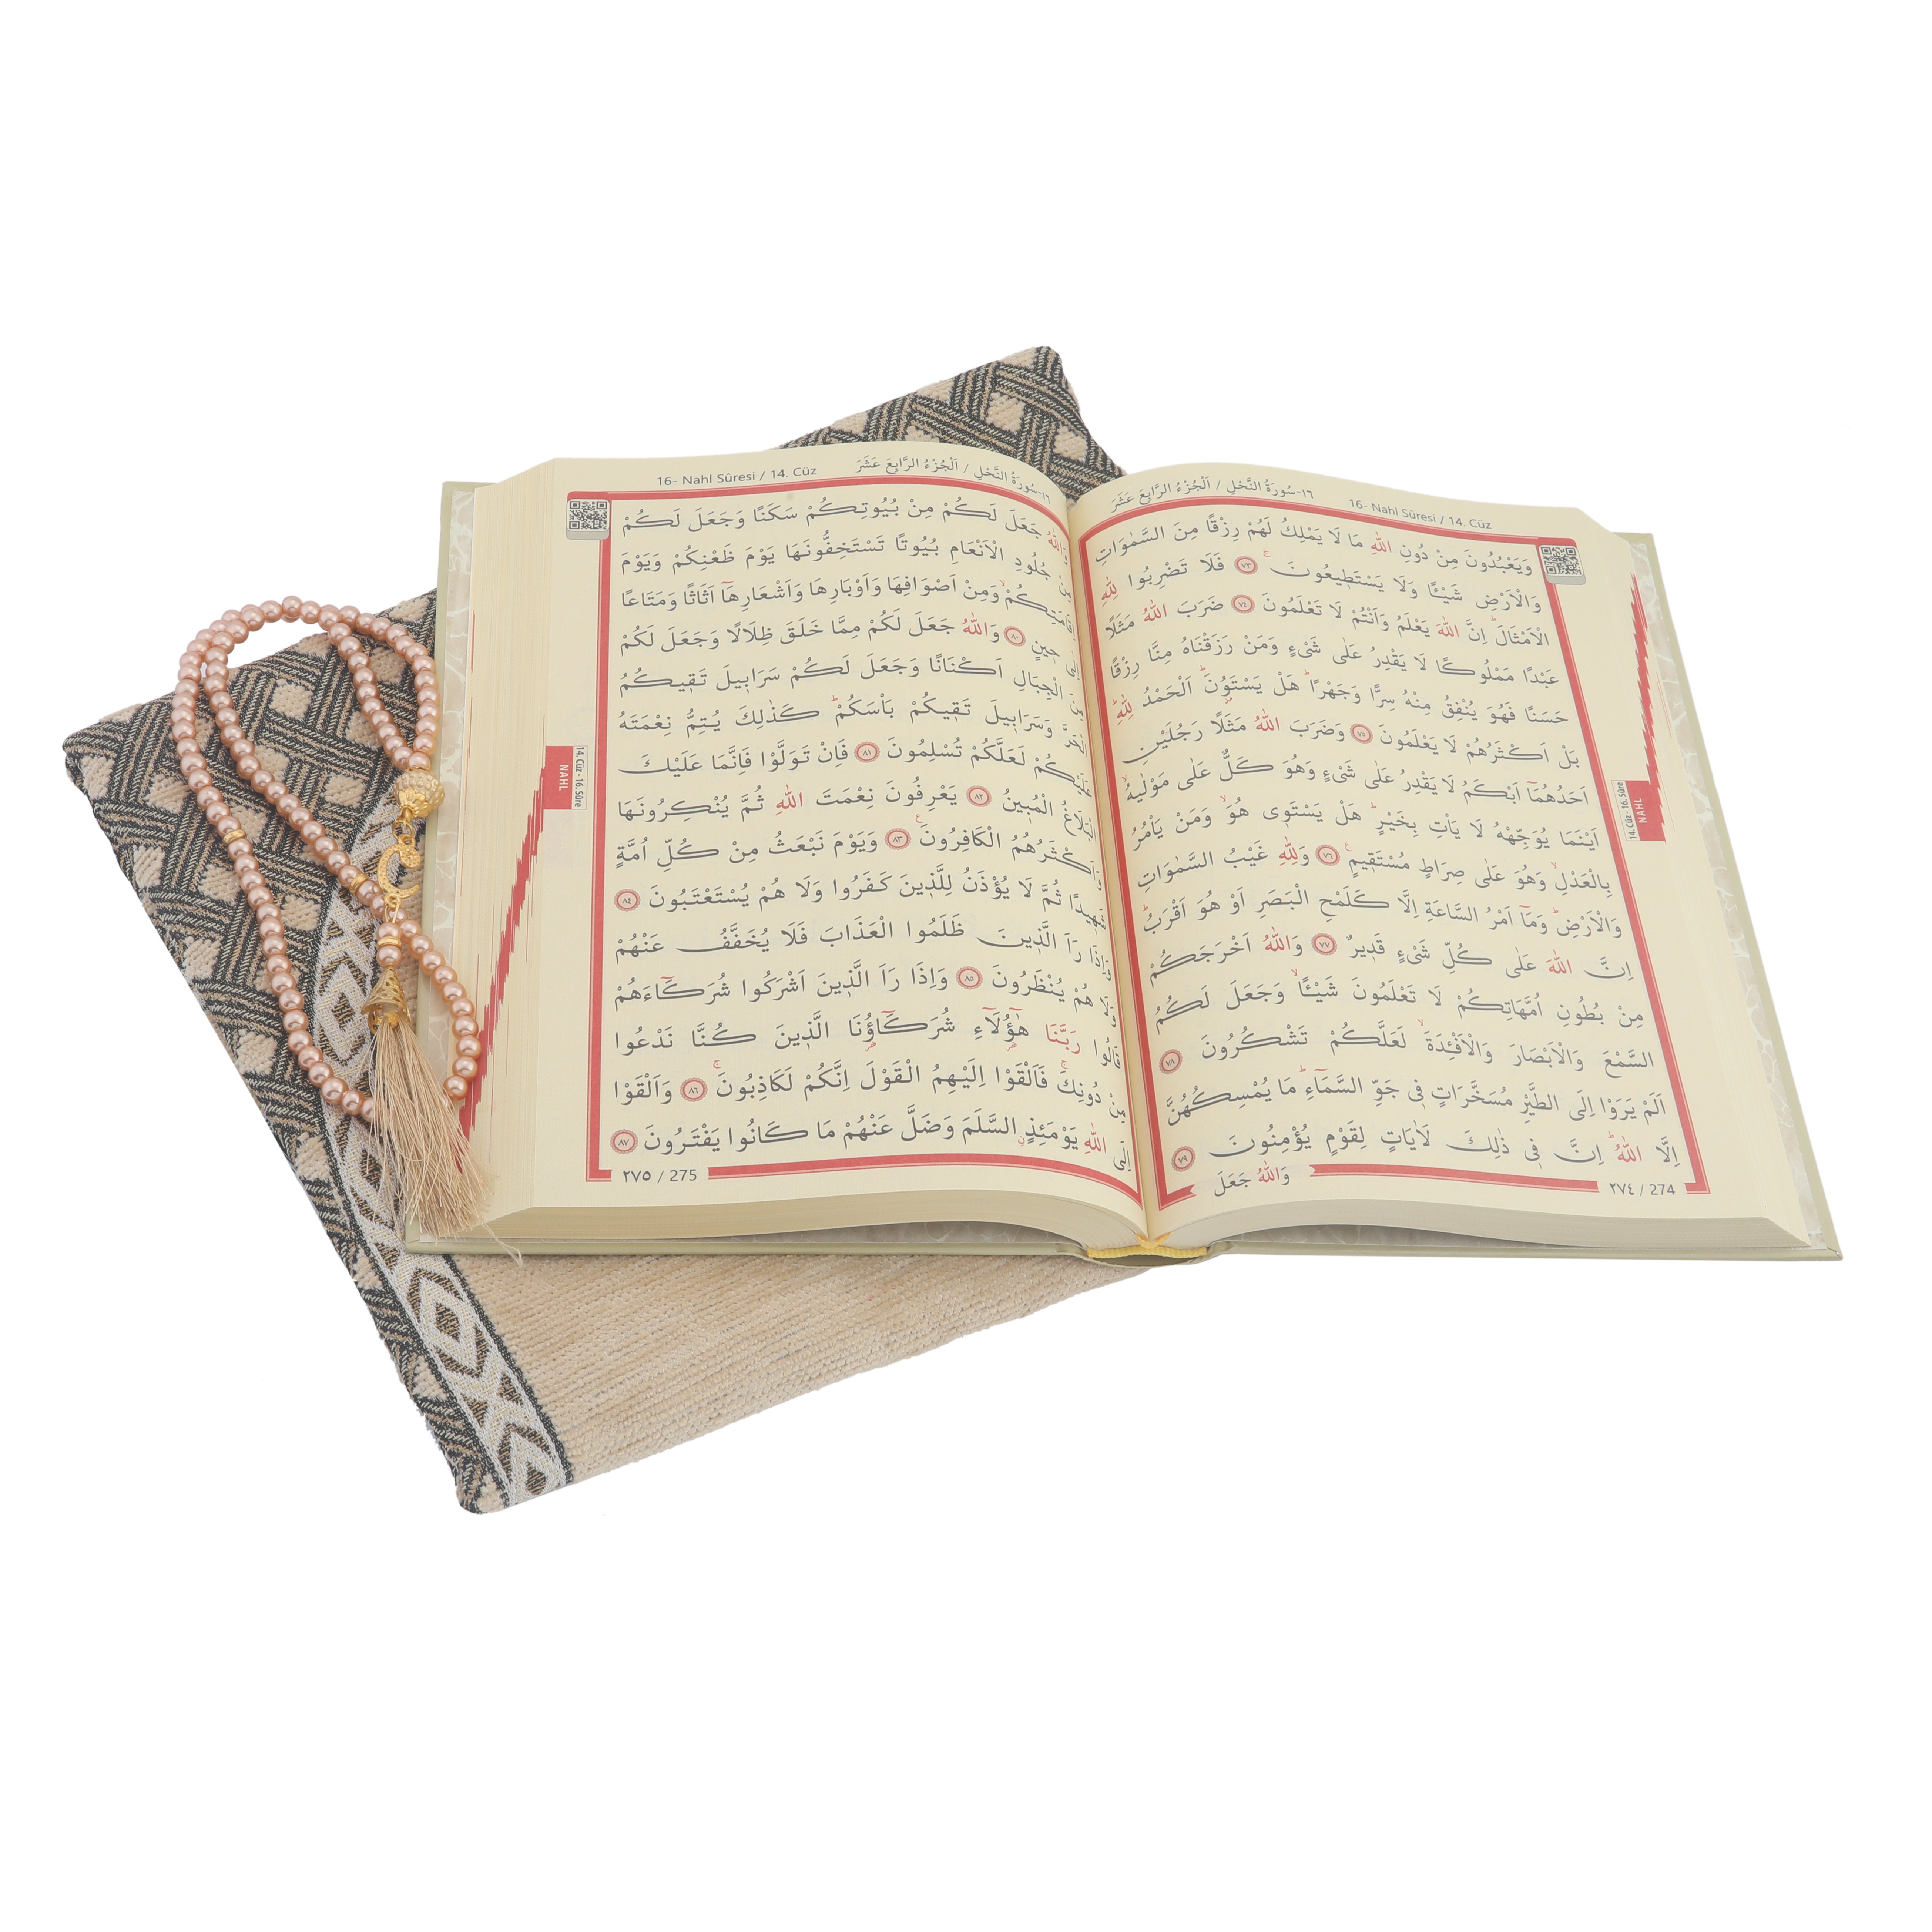 ١٦-سُورَةُ النَّحْلِ / اَلْجُزْءُ الرَّابِعَ عَشَرَ
16- Nahl Sûresi / 14. Cüz
وَيَعْبُدُونَ مِنْ دُونِ اللّٰهِ مَا لَا يَمْلِكُ لَهُمْ رِزْقًا مِنَ السَّمٰوَاتِ
وَالْاَرْضِ شَيْـًٔا وَلَا يَسْتَط۪يعُونَۚ ﴿٧٣﴾ فَلَا تَضْرِبُوا لِلّٰهِ
الْاَمْثَالَۜ اِنَّ اللّٰهَ يَعْلَمُ وَاَنْتُمْ لَا تَعْلَمُونَ ﴿٧٤﴾ ضَرَبَ اللّٰهُ مَثَلًا
عَبْدًا مَمْلُوكًا لَا يَقْدِرُ عَلٰى شَيْءٍ وَمَنْ رَزَقْنَاهُ مِنَّا رِزْقًا
حَسَنًا فَهُوَ يُنْفِقُ مِنْهُ سِرًّا وَجَهْرًاۜ هَلْ يَسْتَوُ۫نَۜ اَلْحَمْدُ لِلّٰهِۜ
بَلْ اَكْثَرُهُمْ لَا يَعْلَمُونَ ﴿٧٥﴾ وَضَرَبَ اللّٰهُ مَثَلًا رَجُلَيْنِ
اَحَدُهُمَٓا اَبْكَمُ لَا يَقْدِرُ عَلٰى شَيْءٍ وَهُوَ كَلٌّ عَلٰى مَوْلٰيهُۙ
اَيْنَمَا يُوَجِّهْهُ لَا يَأْتِ بِخَيْرٍۜ هَلْ يَسْتَو۪ي هُوَۙ وَمَنْ يَأْمُرُ
بِالْعَدْلِۙ وَهُوَ عَلٰى صِرَاطٍ مُسْتَق۪يمٍ۟ ﴿٧٦﴾ وَلِلّٰهِ غَيْبُ السَّمٰوَاتِ
وَالْاَرْضِۜ وَمَٓا اَمْرُ السَّاعَةِ اِلَّا كَلَمْحِ الْبَصَرِ اَوْ هُوَ اَقْرَبُۜ
اِنَّ اللّٰهَ عَلٰى كُلِّ شَيْءٍ قَد۪يرٌ ﴿٧٧﴾ وَاللّٰهُ اَخْرَجَكُمْ
مِنْ بُطُونِ اُمَّهَاتِكُمْ لَا تَعْلَمُونَ شَيْـًٔاۙ وَجَعَلَ لَكُمُ
السَّمْعَ وَالْاَبْصَارَ وَالْاَفْـِٔدَةَۙ لَعَلَّكُمْ تَشْكُرُونَ ﴿٧٨﴾
اَلَمْ يَرَوْا اِلَى الطَّيْرِ مُسَخَّرَاتٍ ف۪ي جَوِّ السَّمَٓاءِۜ مَا يُمْسِكُهُنَّ
اِلَّا اللّٰهُۜ اِنَّ ف۪ي ذٰلِكَ لَاٰيَاتٍ لِقَوْمٍ يُؤْمِنُونَ ﴿٧٩﴾
وَاللّٰهُ جَعَلَ
٢٧٤ / 274
14. Cüz - 16. Sûre
NAHL
16- Nahl Sûresi / 14. Cüz
١٦-سُورَةُ النَّحْلِ / اَلْجُزْءُ الرَّابِعَ عَشَرَ
وَاللّٰهُ جَعَلَ لَكُمْ مِنْ بُيُوتِكُمْ سَكَنًا وَجَعَلَ لَكُمْ
مِنْ جُلُودِ الْاَنْعَامِ بُيُوتًا تَسْتَخِفُّونَهَا يَوْمَ ظَعْنِكُمْ وَيَوْمَ
اِقَامَتِكُمْۙ وَمِنْ اَصْوَافِهَا وَاَوْبَارِهَا وَاَشْعَارِهَٓا اَثَاثًا وَمَتَاعًا
اِلٰى ح۪ينٍ ﴿٨٠﴾ وَاللّٰهُ جَعَلَ لَكُمْ مِمَّا خَلَقَ ظِلَالًا وَجَعَلَ لَكُمْ
مِنَ الْجِبَالِ اَكْنَانًا وَجَعَلَ لَكُمْ سَرَاب۪يلَ تَق۪يكُمُ
الْحَرَّ وَسَرَاب۪يلَ تَق۪يكُمْ بَأْسَكُمْۜ كَذٰلِكَ يُتِمُّ نِعْمَتَهُ
عَلَيْكُمْ لَعَلَّكُمْ تُسْلِمُونَ ﴿٨١﴾ فَاِنْ تَوَلَّوْا فَاِنَّمَا عَلَيْكَ
الْبَلَاغُ الْمُب۪ينُ ﴿٨٢﴾ يَعْرِفُونَ نِعْمَتَ اللّٰهِ ثُمَّ يُنْكِرُونَهَا
وَاَكْثَرُهُمُ الْكَافِرُونَ۟ ﴿٨٣﴾ وَيَوْمَ نَبْعَثُ مِنْ كُلِّ اُمَّةٍ
شَه۪يدًا ثُمَّ لَا يُؤْذَنُ لِلَّذ۪ينَ كَفَرُوا وَلَا هُمْ يُسْتَعْتَبُونَ ﴿٨٤﴾
وَاِذَا رَاَ الَّذ۪ينَ ظَلَمُوا الْعَذَابَ فَلَا يُخَفَّفُ عَنْهُمْ
وَلَا هُمْ يُنْظَرُونَ ﴿٨٥﴾ وَاِذَا رَاَ الَّذ۪ينَ اَشْرَكُوا شُرَكَٓاءَهُمْ
قَالُوا رَبَّنَا هٰٓؤُ۬لَٓاءِ شُرَكَٓاؤُ۬نَا الَّذ۪ينَ كُنَّا نَدْعُوا
مِنْ دُونِكَۚ فَاَلْقَوْا اِلَيْهِمُ الْقَوْلَ اِنَّكُمْ لَكَاذِبُونَۚ ﴿٨٦﴾ وَاَلْقَوْا
اِلَى اللّٰهِ يَوْمَئِذٍۨ السَّلَمَ وَضَلَّ عَنْهُمْ مَا كَانُوا يَفْتَرُونَ ﴿٨٧﴾
٢٧٥ / 275
14. Cüz - 16. Sûre
NAHL